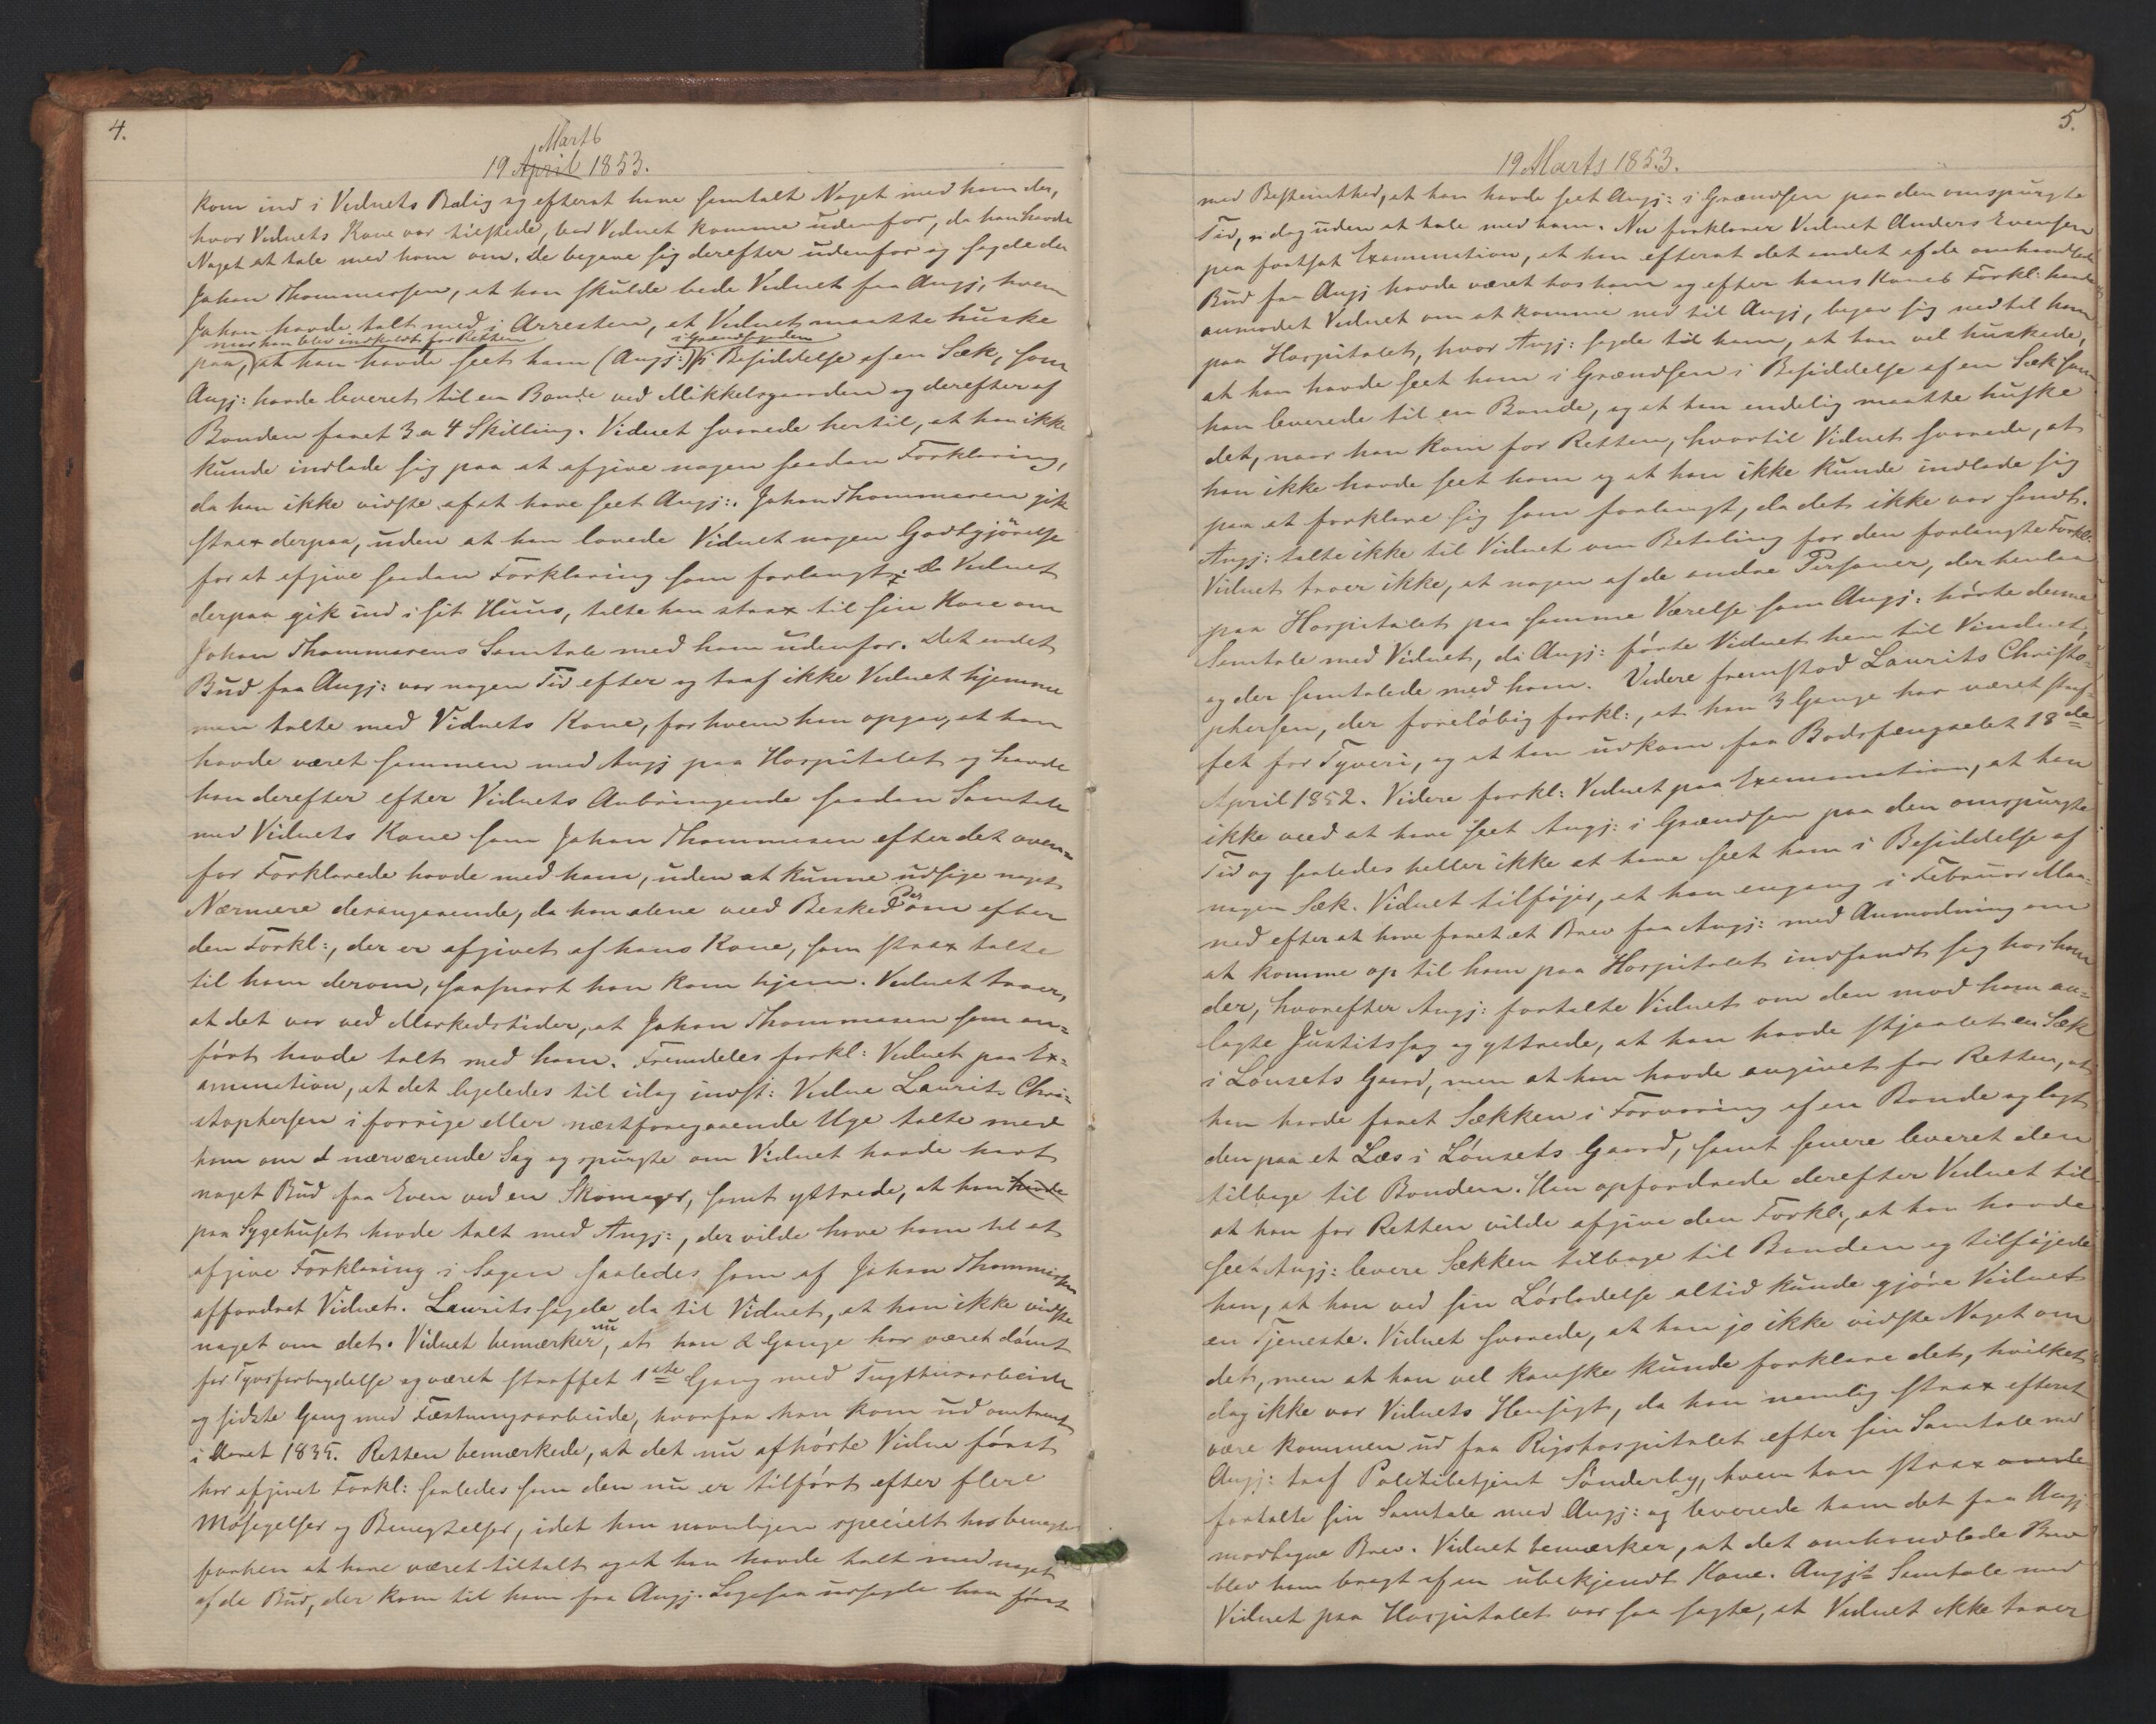 4.
Marts
19 April 1853.
kom ind i Vidnets Bolig og efterat have samtalt Noget med ham der,
hvor Vidnets Kone var tilstede, bad Vidnet komme udenfor, da han havde
Noget at tale med ham om. De begave sig derefter udenfor og sagde da
Johan Thommassen, at han skulde bede Vidnet fra Angj, hvem
Johan havde talt med i Arresten, at Vidnet maatte huske
naar han blev indkaldt for Retten i Grændsegaden
paa, at han havde seet ham (Angj:) i Besiddelse af en Sæk, som
Angj: havde leveret til en Bonde ved Mikkelsgaarden og derefter af
Bonden faaet 3 a 4 Skilling. Vidnet svarede hertil, at han ikke
kunde indlade sig paa at afgive nogen saadan Forklaring,
da han ikke vidste af at have seet Angj:. Johan Thommesen gik
strax derpaa, uden at han lovede Vidnet nogen Godtgjörelse
for at afgive saadan Forklaring som forlangt. Da Vidnet
derpaa gik ind i sit Huus, talte han strax til sin Kone om
Johan Thommesens Samtale med ham udenfor. Det andet
Bud fra Angj: var nogen Tid efter og traf ikke Vidnet hjemme
men talte med Vidnets Kone, for hvem han opgav, at han
havde været sammen med Angj paa Hospitalet og havde
han derefter efter Vidnets Anbringende saadan Samtale
med Vidnets Kone som Johan Thommesen efter det oven-
for Forklarede havde med ham, uden at kunne udsige noget
Nærmere desangaaende, da han alene veed Besked derom efter
den Forkl:, der er afgivet af hans Kone, som strax talte
til ham derom, saasnart han kom hjem. Vidnet troer,
at det var ved Markedstider, at Johan Thommesen som an-
fört havde talt med ham. Fremdeles forkl: Vidnet paa Ex-
amination, at det ligeledes til idag indst: Vidne Laurits Chri-
stophersen i forrige eller næstforegaaende Uge talte med
ham om nærværende Sag og spurgte om Vidnet havde havt
noget Bud fra Even ved en Skomager, samt yttrede, at han havde
paa Sygehuset havde talt med Angj:, der vilde have ham til at
afgive Forklaring i Sagen saaledes som af Johan Thommessen
affordret Vidnet. Laurits sagde da til Vidnet, at han ikke vidste
noget om det. Vidnet bemærker nu, at han 2 Gange har været dömt
for Tyvsforbrydelse og været straffet 1ste Gang med Tugthusarbeide
og sidste Gang med Fæstningsarbeide, hvorfra han kom ud omtrent
i Aaret 1835. Retten bemærkede, at det nu afhörte Vidne först
har afgivet Forkl: saaledes som den nu er tilfört efter flere
Modsigelser og Benegtelser, idet han navnligen specielt har benegtet
forhen at have været tiltalt og at han havde talt med noget
af de Bud, der kom til ham fra Angj. Ligesaa udsagde han först
5.
19 Marts 1853.
med Bestemthed, at han havde seet Angj: i Grændsen paa den omspurgte
Tid, dog uden at tale med ham. Nu forklarer Vidnet Anders Evensen
paa fortsat Examination, at han efterat det andet af de omhandlede
Bud fra Angj havde været hos ham og efter hans Kones Forkl: havde
anmodet Vidnet om at komme ned til Angj, begav sig ned til ham
paa Hospitalet, hvor Angj: sagde til ham, at han vel huskede,
at han havde seet ham i Grændsen i Besiddelse af en Sæk som
han leverede til en Bonde, og at han endelig maatte huske
det, naar han kom for Retten, hvortil Vidnet svarede, at
han ikke havde seet ham og at han ikke kunde indlade sig
paa at forklare sig som forlangt, da det ikke var sandt.
Angj: talte ikke til Vidnet om Betaling for den forlangte Forkl:
Vidnet troer ikke, at nogen af de andre Personer, der henlaa
paa Hospitalet paa samme Værelse som Angj: hörte denne
Samtale med Vidnet, da Angj: förte Vidnet hen til Vinduet
og der samtalede med ham. Videre fremstod Laurits Christo-
phersen, der forelöbig forkl:, at han 3 Gange har været straf-
fet for Tyveri, og at han udkom fra Bodsfængselet 18de
April 1852. Videre forkl: Vidnet paa Examination, at han
ikke veed at have seet Angj: i Grændsen paa den omspurgte
Tid og saaledes heller ikke at have seet ham i Besiddelse af
nogen Sæk. Vidnet tilföjer, at han engang i Februar Maa-
ned efter at have faaet et Brev fra Angj: med Anmodning om
at komme op til ham paa Hospitalet indfandt sig hos ham
der, hvorefter Angj: fortalte Vidnet om den mod ham an-
lagte Justitssag og yttrede, at han havde stjaalet en Sæk
i Lönsets Gaard, men at han havde angivet for Retten, at
han havde faaet Sækken i Forvaring af en Bonde og lagt
den paa et Læs i Lönsets Gaard, samt senere leveret den
tilbage til Bonden. Han opfordrede derefter Vidnet til
at han for Retten vilde afgive den Forkl:, at han havde
seet Angj: levere Sækken tilbage til Bonden og tilföjede
han, at han ved sin Lösladelse altid kunde gjöre Vidnet
en Tjeneste. Vidnet svarede, at han jo ikke vidste Noget om
det, men at han vel kanske kunde forklare det, hvilket
dog ikke var Vidnets Hensigt, da han nemlig strax efterat
være kommen ud fra Rigshospitalet efter sin Samtale med
Angj: traf Politibetjent Sönderby, hvem han strax
fortalte sin Samtale med Angj: og leverede ham det fra Angj
modtagne Brev. Vidnet bemærker, at det omhandlede Brev
blev ham bragt af en ubekjendt Kone. Angjs Samtale med
Vidnet paa Hospitalet var saa sagte, at Vidnet ikke troer